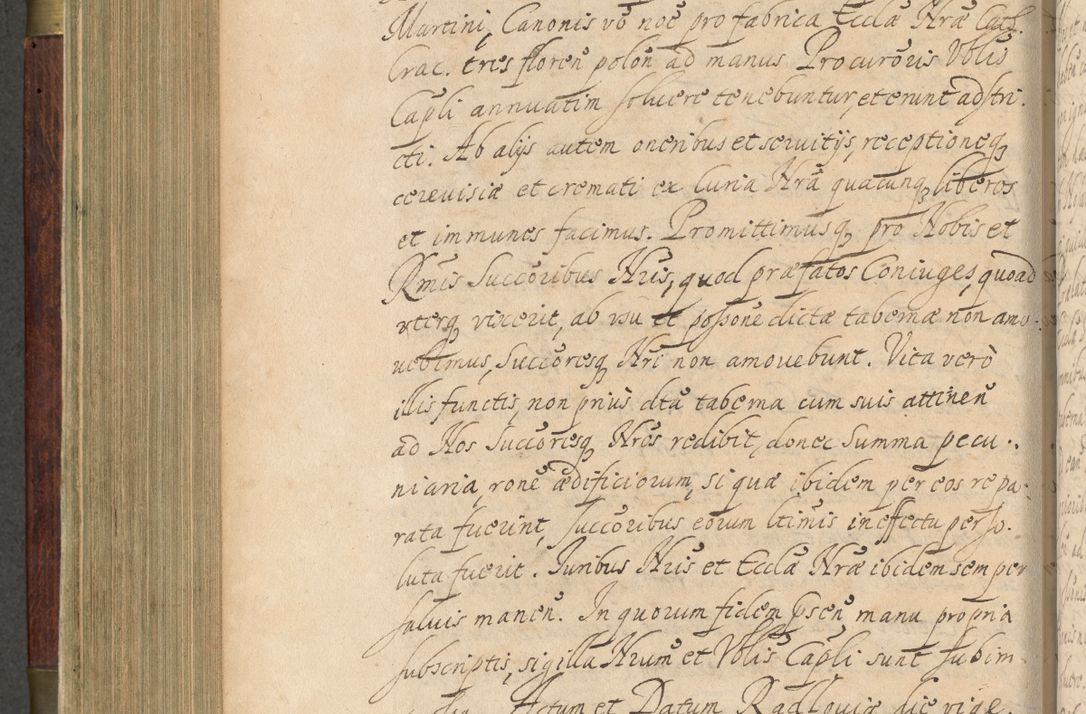 Martini, Canonis vō noē pro fabrica Ecclæ Nræ Cath.
Crac. tres floreñ poloñ ad manus Procurōris Vblis
Capli annuatim soluere tenebuntur, et erunt adstri-
cti. Ab alijs autem oneribus et seruitijs, receptioneq
cereuisiæ et cremati ex Curia Nrā quacunq liberos
et immunes facimus. Promittimusq pro Nobis et
Rmis Succōribus Nris, quod præfatos Coniuges, quoad
uterq vixerit, ab vsu et possone dictæ tabernæ non amo-
uebimus, Succōresq Nri non amouebunt. Vita verò
illis functis, non prius dta taberna cum suis attineñ
ad Nos Succōresq Nros redibit, donec Summa pecu-
niaria, rone ædificiorum, si quæ ibidem per eos repa-
rata fuerint, succōribus eorum ltimis in effectu perso-
luta fuerit. Juribus Nris et Ecclæ Nræ ibidem semper
saluis maneñ. In quorum fidem pseñ manu propria
subscriptis, sigilla Nrum et Vblis Capli sunt subim-
Actum et Datum Radlouiæ die vige-